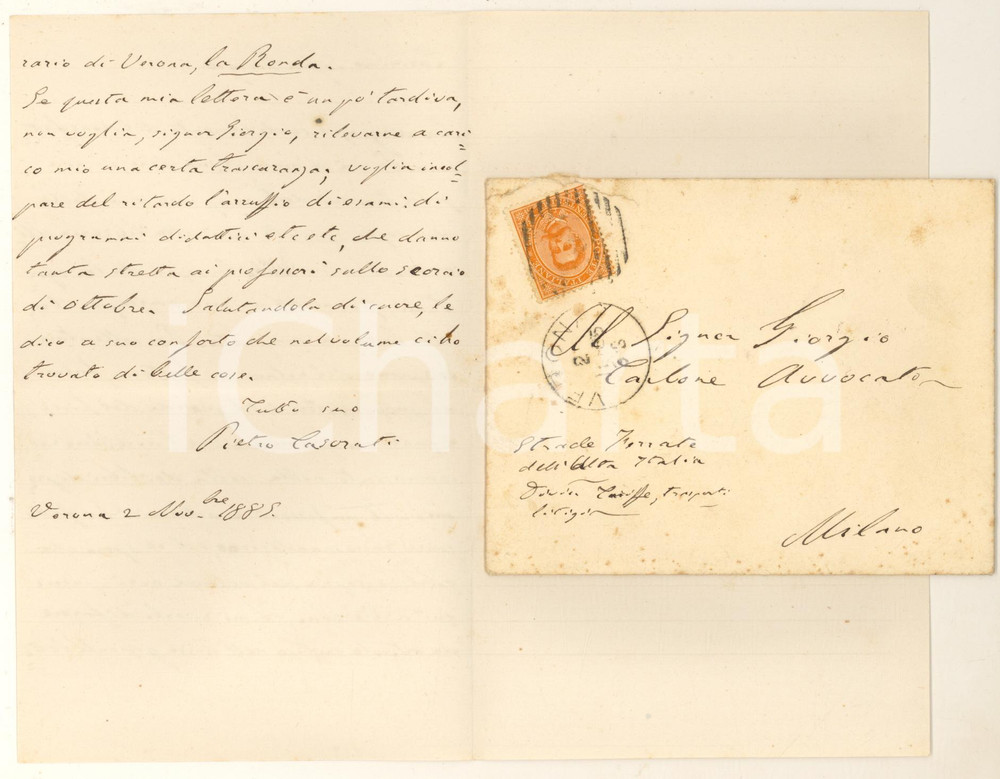 rario di Verona, la Ronda.
Se questa mia lettera è un po' tardiva,
non voglia, signor Giorgio, rilevarne a cari=
co mio una certa trascuranza; voglia incol=
pare del ritardo l'arruffio di esami, di
programmi didattici etc etc, che danno
tanta stretta ai professori sullo scorcio
di ottobre. Salutandola di cuore, le
dico a suo conforto che nel volume ci ho
trovato di belle cose.
Tutto suo
Pietro Casorati
Verona 2 Nov.bre 1885.
Al Signor Giorgio
Carbone Avvocato
Strade Ferrate
dell'Alta Italia
Tariffe, trasporti
Milano
VERONA
iCharta